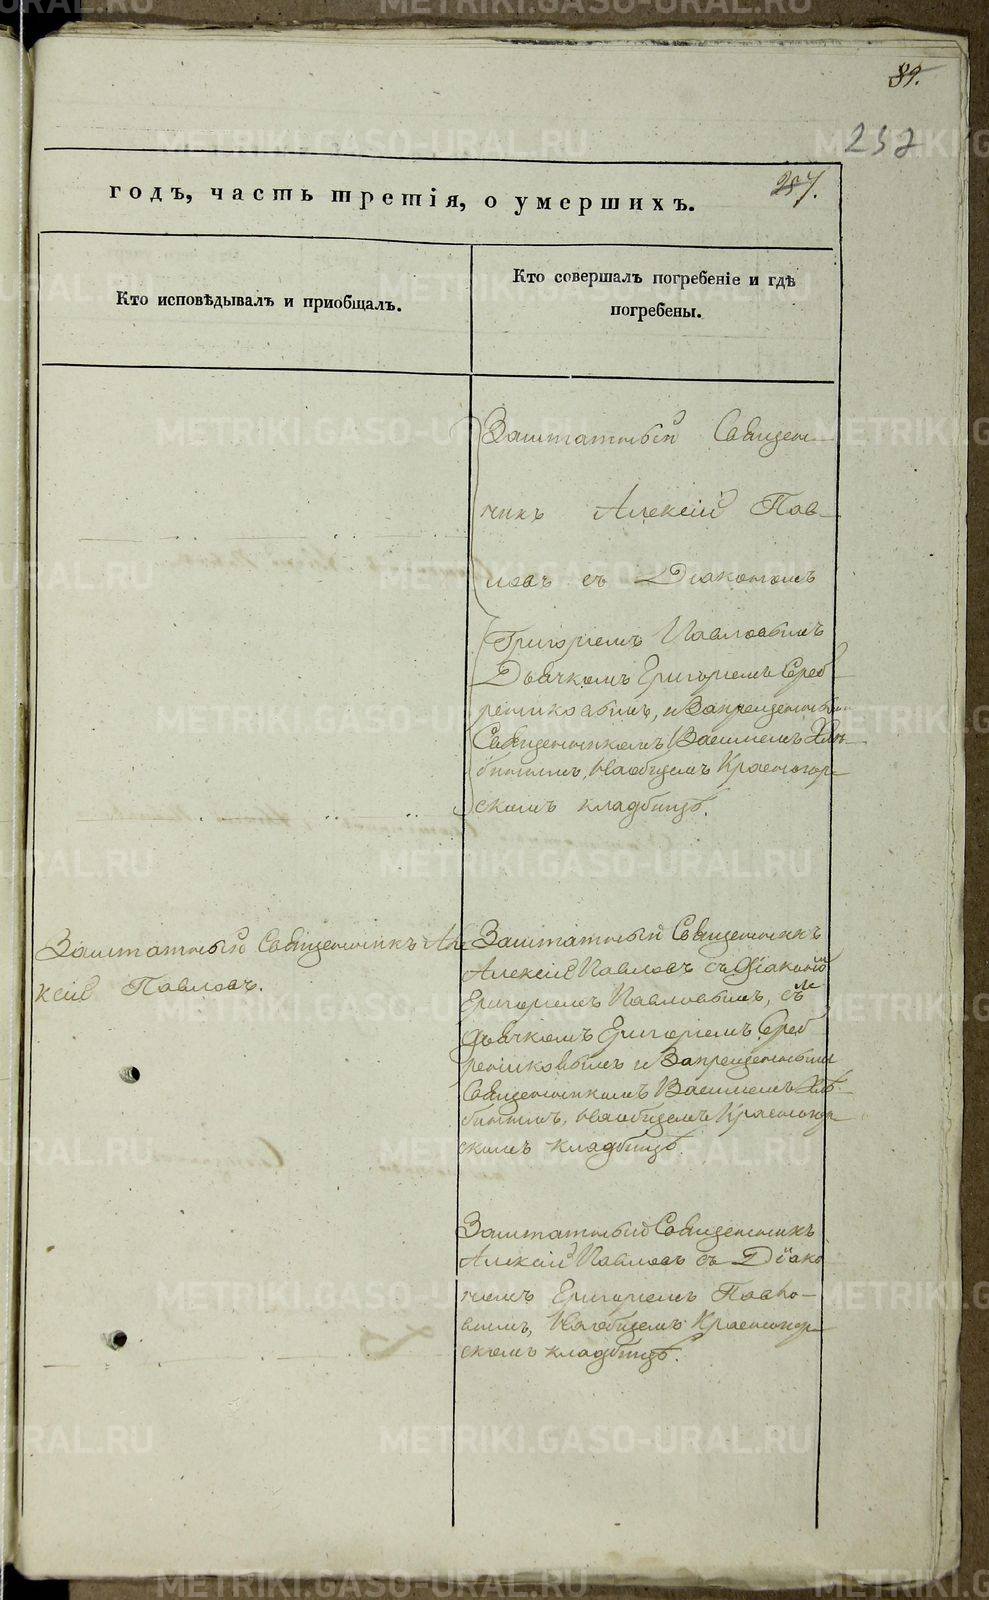 89.
257
257.
годъ, часть третія, о умершихъ.
Кто исповѣдывалъ и пріобщалъ.
Кто совершалъ погребеніе и гдѣ
погребены.
Заштатный Священ-
никъ Алексій Пав-
ловъ съ Діакономъ
Григоріемъ Павловымъ
Дьячкомъ Григоріемъ Сереб
рениковымъ, и Запрещеннымъ
Священникомъ Василіемъ Хлѣ-
бинымъ, На общемъ Красногор-
скомъ кладбищѣ.
Заштатный Священникъ Але
ксій Павловъ.
Заштатный Священникъ
Алексій Павловъ съ Діакономъ
Григоріемъ Павловымъ, съ
Дьячкомъ Григоріемъ Сереб
рениковымъ и Запрещеннымъ
Священникомъ Василіемъ Хлѣ-
бинымъ, на общемъ Красногор
скомъ кладбищѣ.
Заштатный Священникъ
Алексій Павловъ съ Діако
номъ Григоріемъ Павло-
вымъ, На общемъ Красногор
скомъ кладбищѣ.
METRIKI.GASO-URAL.RU